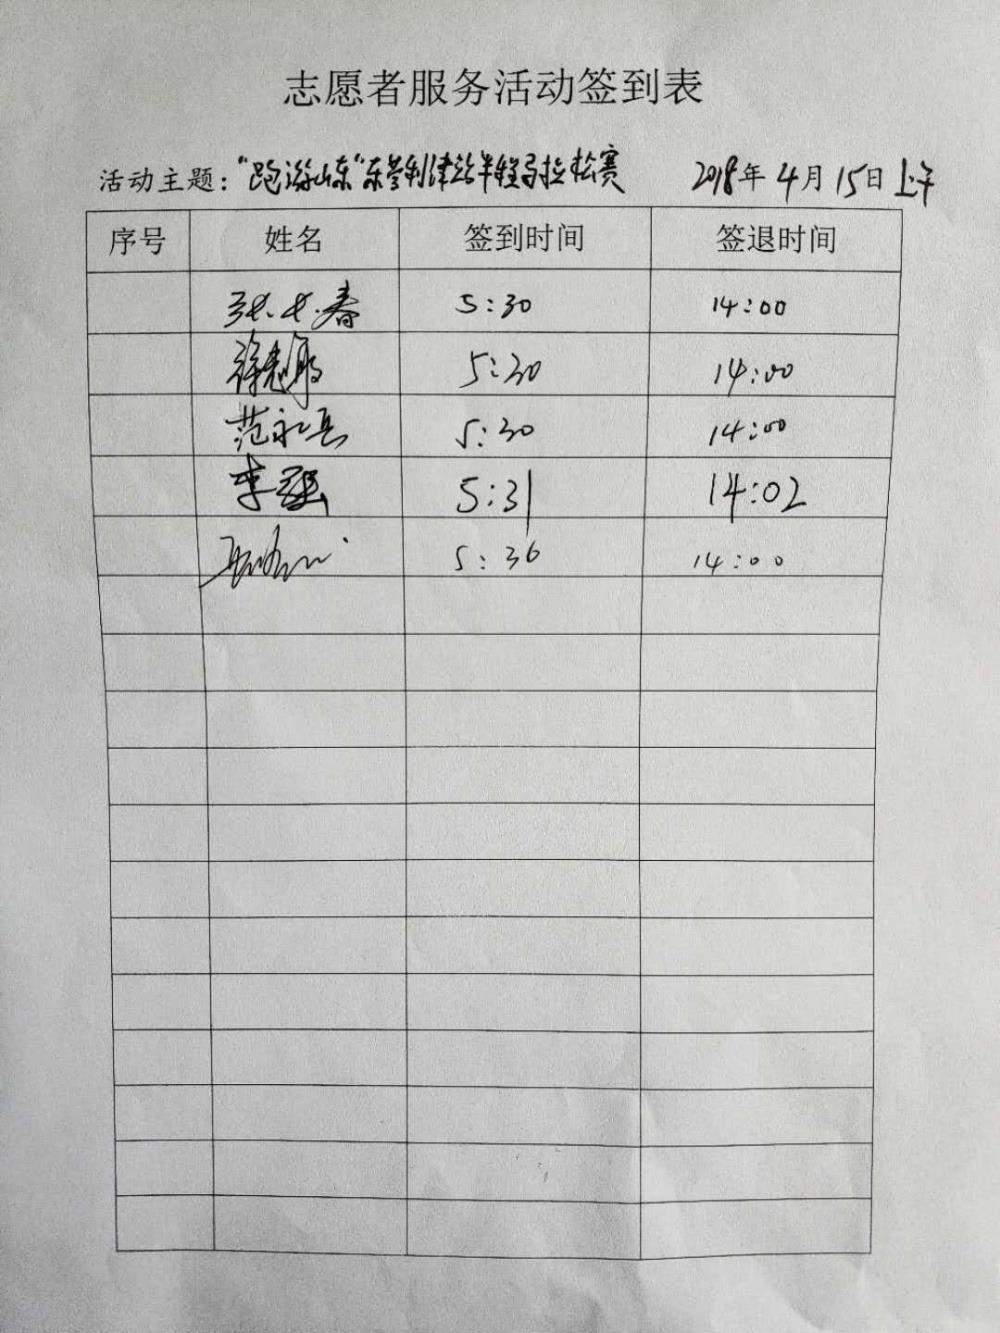 志愿者服务活动签到表
活动主题："跑游山东"东营利津站半程马拉松赛 2018年4月15日上午
序号 姓名 签到时间 签退时间
5:30 14:00
5:30 14:00
范永县 5:30 14:00
李强 5:31 14:02
5:36 14:00